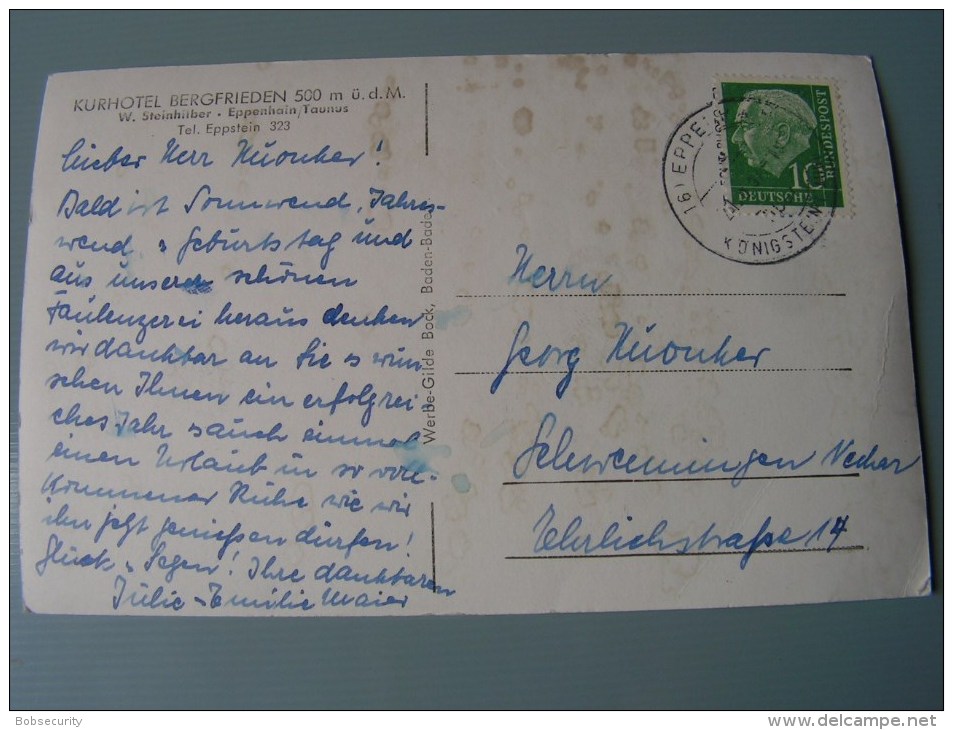 KURHOTEL BERGFRIEDEN 500 m ü. d. M.
W. Steinhilber • Eppenhain/Taunus
Tel. Eppstein 323
Lieber Herr
Bald ist Sonnwend, Jahres-
wend, u Geburtstag und
aus unserer schönen
Faulenzerei heraus denken
wir dankbar an Sie u wün
schen Ihnen ein erfolgrei
ches Jahr u auch einmal
einen Urlaub in so voll-
kommener Ruhe wie wir
ihn jetzt genießen dürfen!
Glück u Segen! Ihre dankbaren
Julie u Emilie Maier
Werbe-Gilde Bock, Baden-Baden
(16) EPPE
KÖNIGSTEIN
10
DEUTSCHE
BUNDESPOST
Herrn
Georg
Schwenningen Neckar
Ehrlichstraße 14
Bobsecurity
delcampe.net